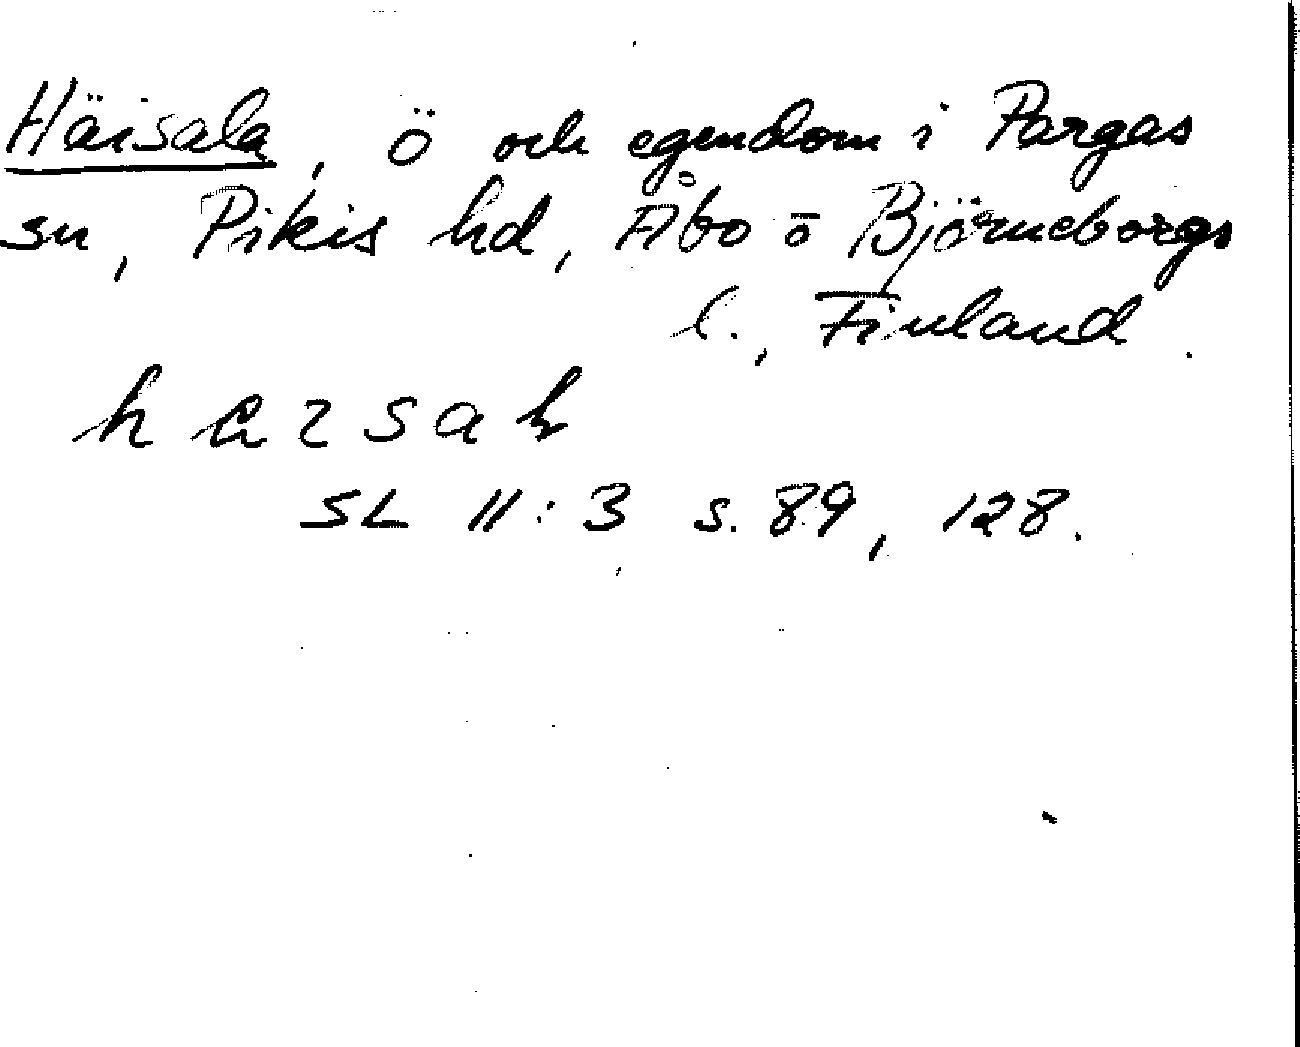 Häisala, ö och egendom i Pargas
sn, Pikis hd, Åbo o Björneborgs
l., Finland.
SL 11:3 s. 89, 128.